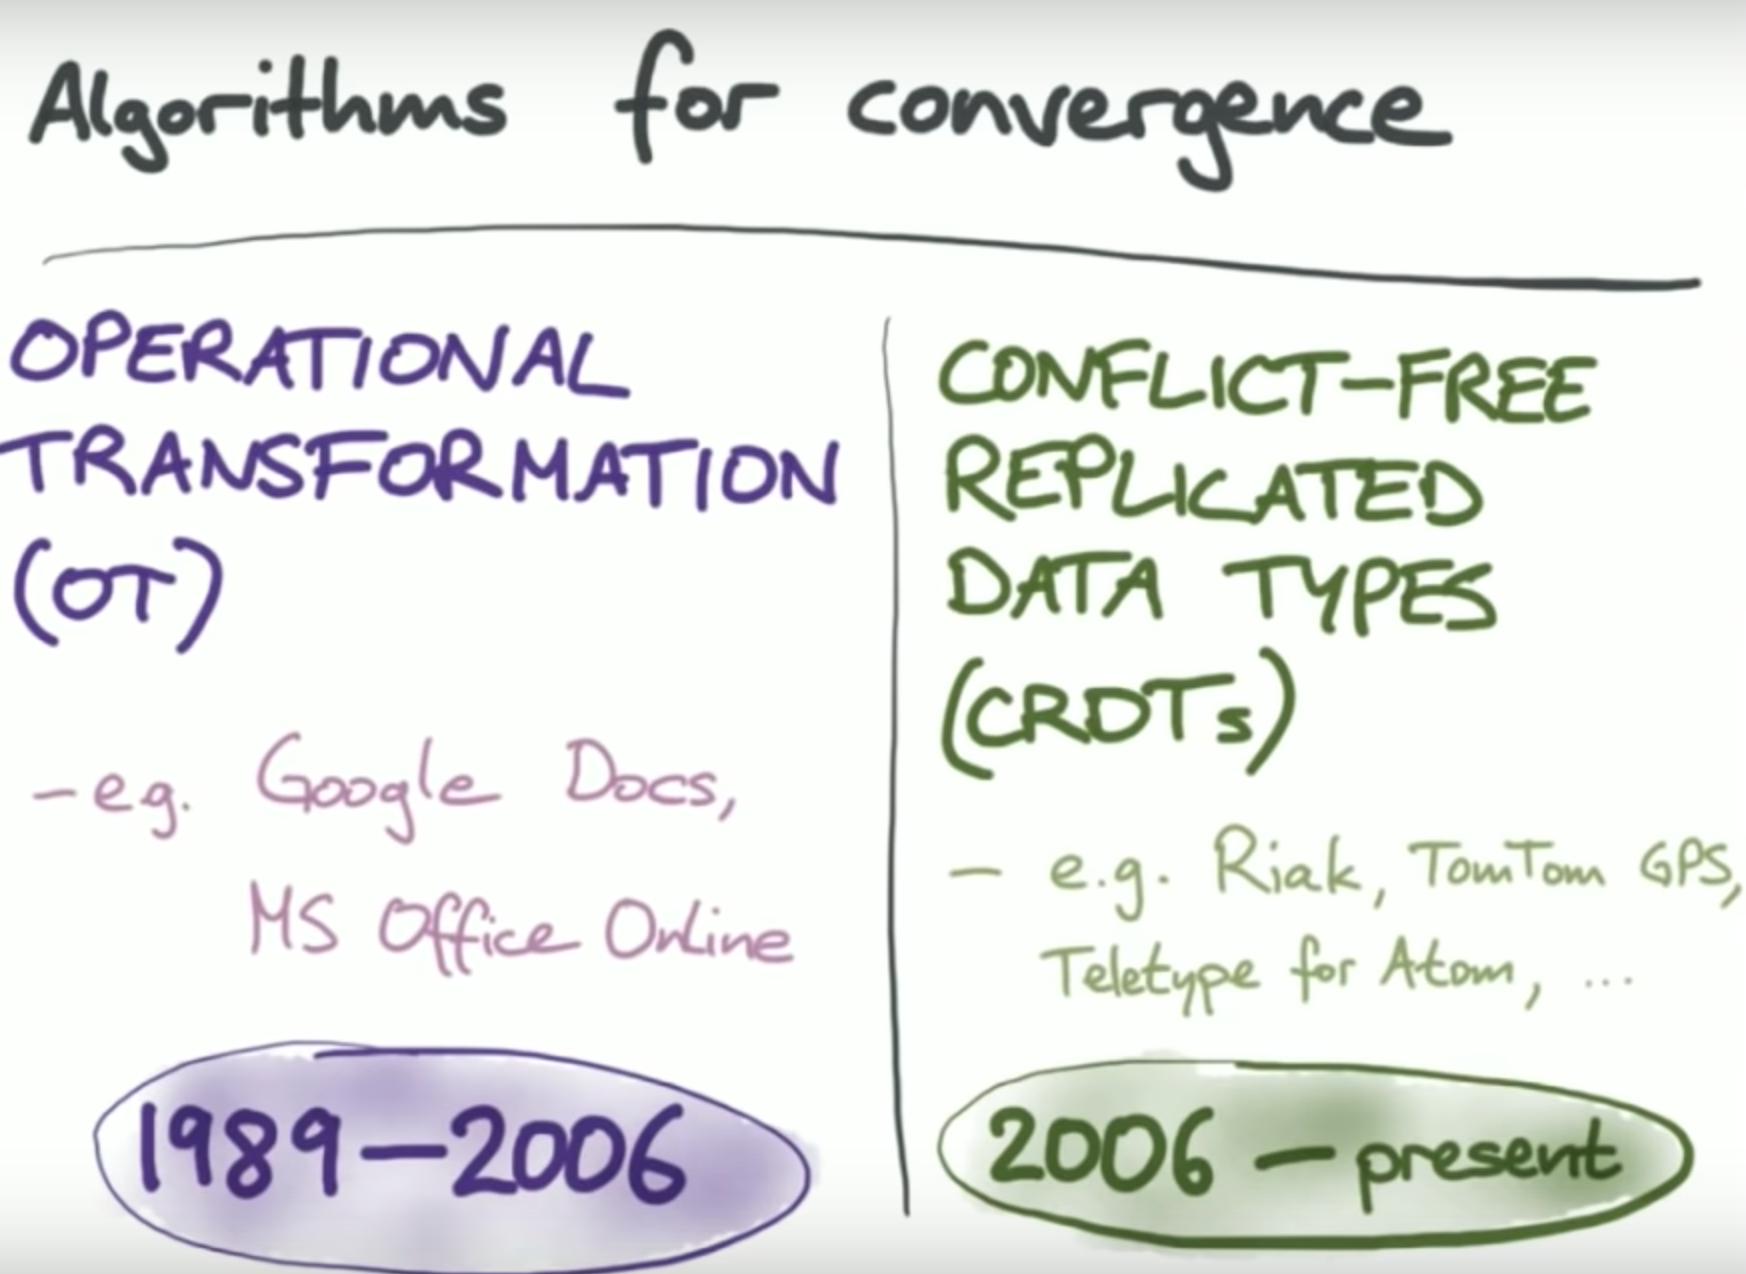 Algorithms for convergence
OPERATIONAL
TRANSFORMATION
(OT)
- e.g. Google Docs,
MS Office Online
1989-2006
CONFLICT-FREE
REPLICATED
DATA TYPES
(CRDTs)
- e.g. Riak, TomTom GPS,
Teletype for Atom, ...
2006 - present